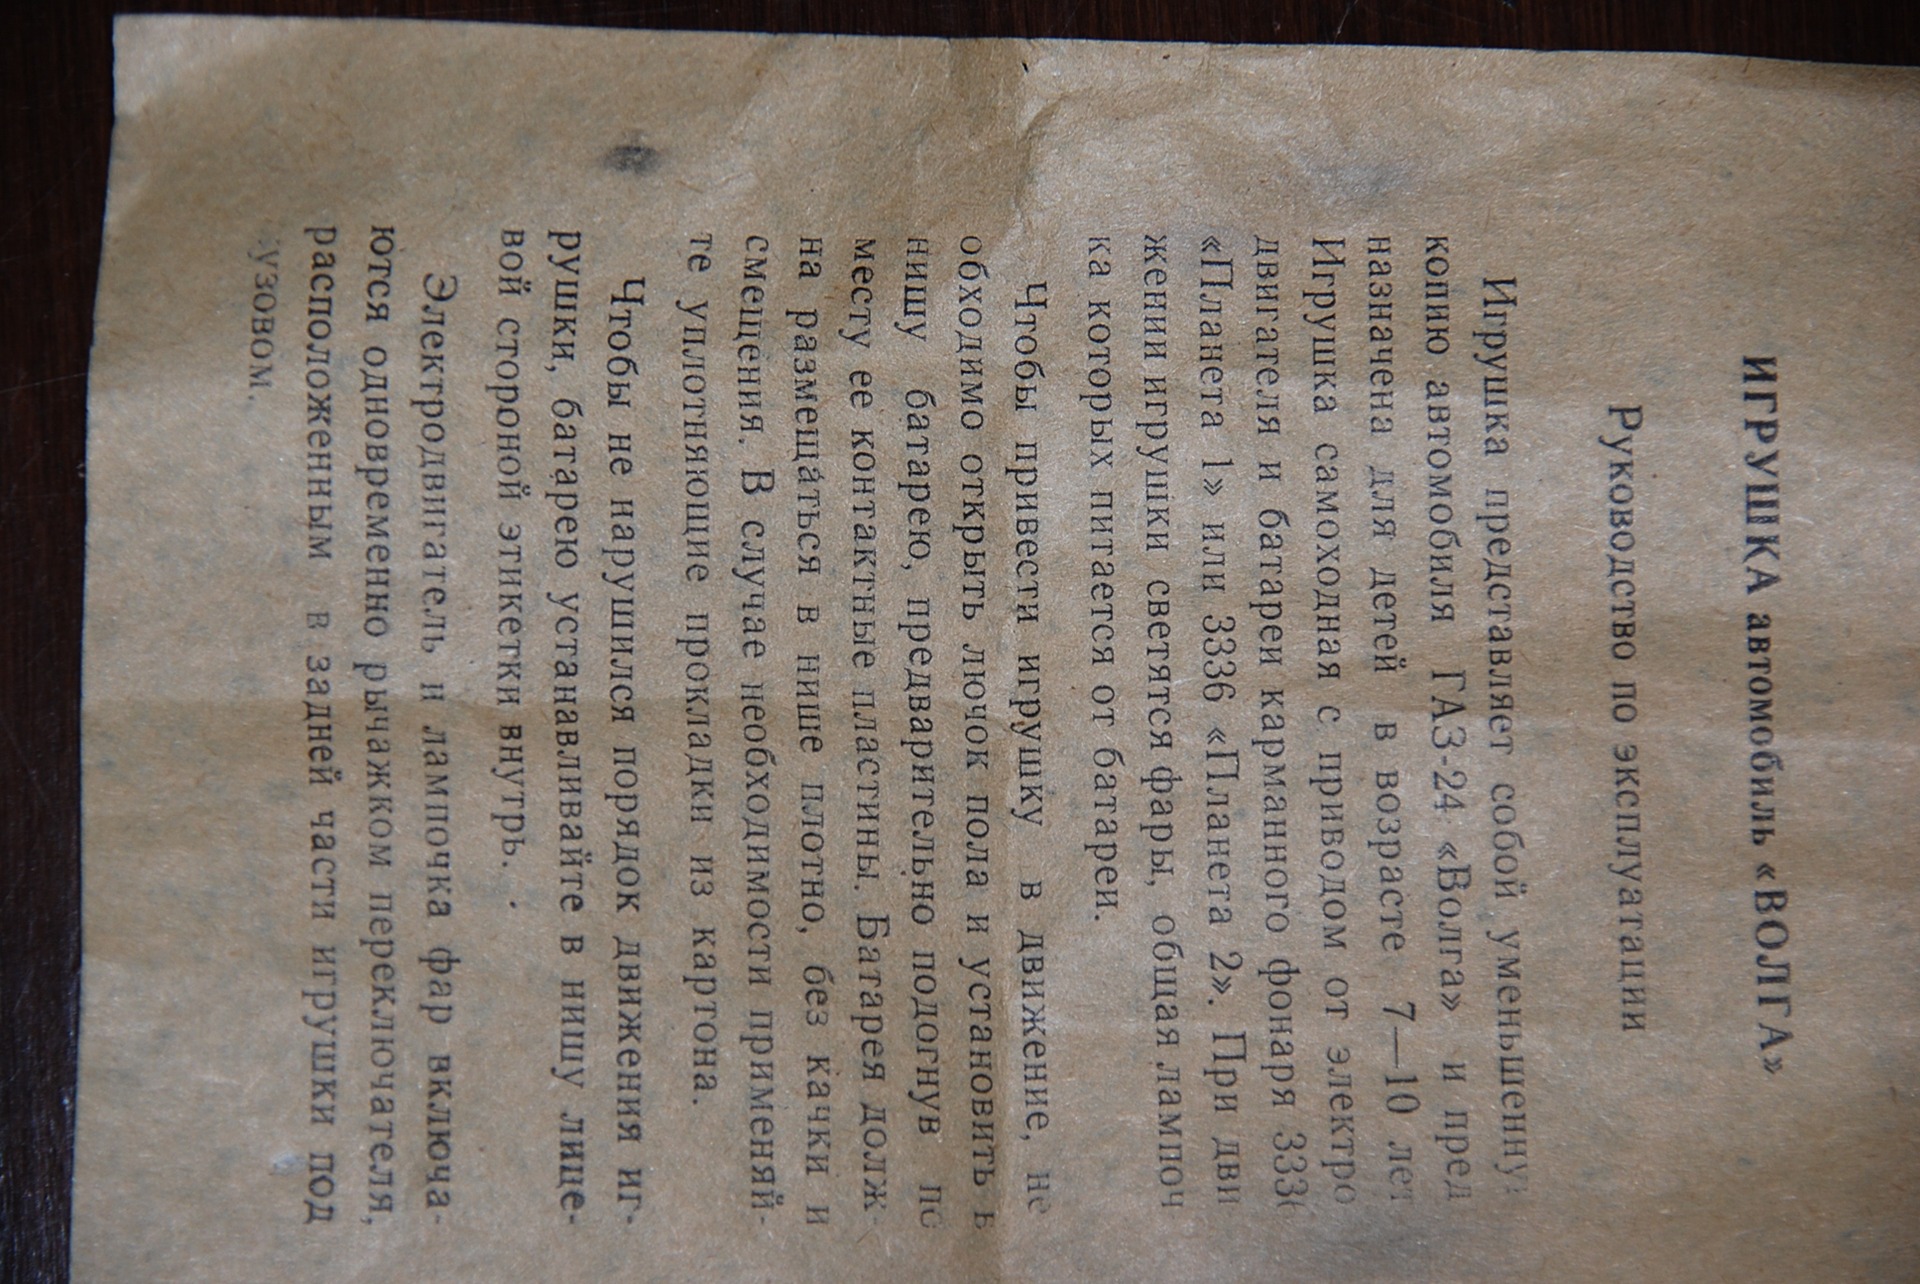 ИГРУШКА автомобиль «ВОЛГА»
Руководство по эксплуатации
Игрушка представляет собой
копию автомобиля ГАЗ-24 «Волга» и пред
назначена для детей в возрасте 7—10 лет
Игрушка самоходная с приводом от электро
двигателя и батареи карманного фонаря
«Планета 1» или 3336 «Планета 2». При дви
жении игрушки светятся фары, общая лампоч
ка которых питается от батареи.
Чтобы привести игрушку в движение, не
обходимо открыть лючок пола и установить в
нишу батарею, предварительно подогнув по
месту ее контактные пластины. Батарея долж-
на размещаться в нише плотно, без качки и
смещения. В случае необходимости применяй-
те уплотняющие прокладки из картона.
Чтобы не нарушился порядок движения иг-
рушки, батарею устанавливайте в нишу лице-
вой стороной этикетки внутрь.
Электродвигатель и лампочка фар включа-
ются одновременно рычажком переключателя,
расположенным в задней части игрушки под
узовом.